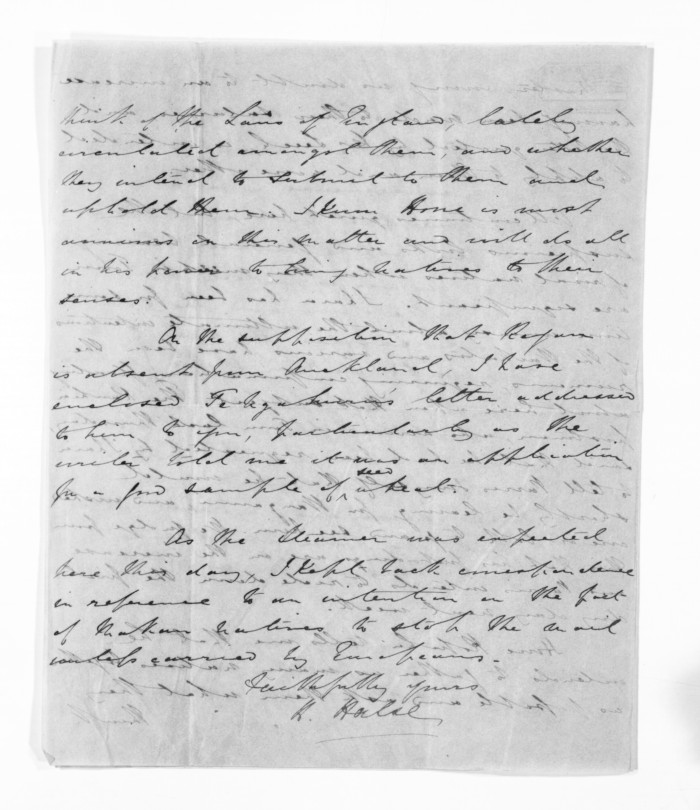 think of the Laws of England, lately
circulated amongst them, and whether
they intend to submit to them and
uphold them. Hone is most
anxious in this matter and will do all
in his power to bring natives to their
senses.
On the supposition that Rogan
is absent from Auckland, I have
enclosed Te Ngahuru's letter addressed
to him to you, particularly as the
writer told me it was an application
for a good sample of seed wheat.
As the Steamer was expected
here this day, I kept back correspondence
in reference to an intention on the part
of natives to stop the mail
unless carried by Europeans.
Faithfully yours
H. Halse